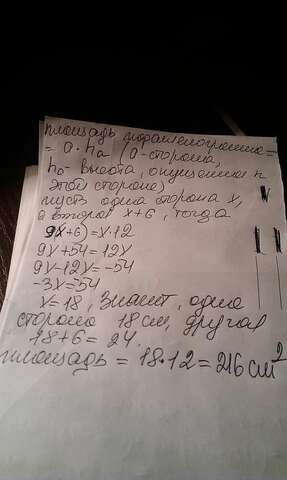 площадь параллелограмма =
= a · ha (а-сторона,
ha - высота, опущенная к
этой стороне)
пусть одна сторона x,
а вторая x+6, тогда
9(x+6)=x·12
9x+54=12x
9x-12x=-54
-3x=-54
x=18, значит, одна
сторона 18 см, другая
18+6=24.
площадь = 18·12=216 см²